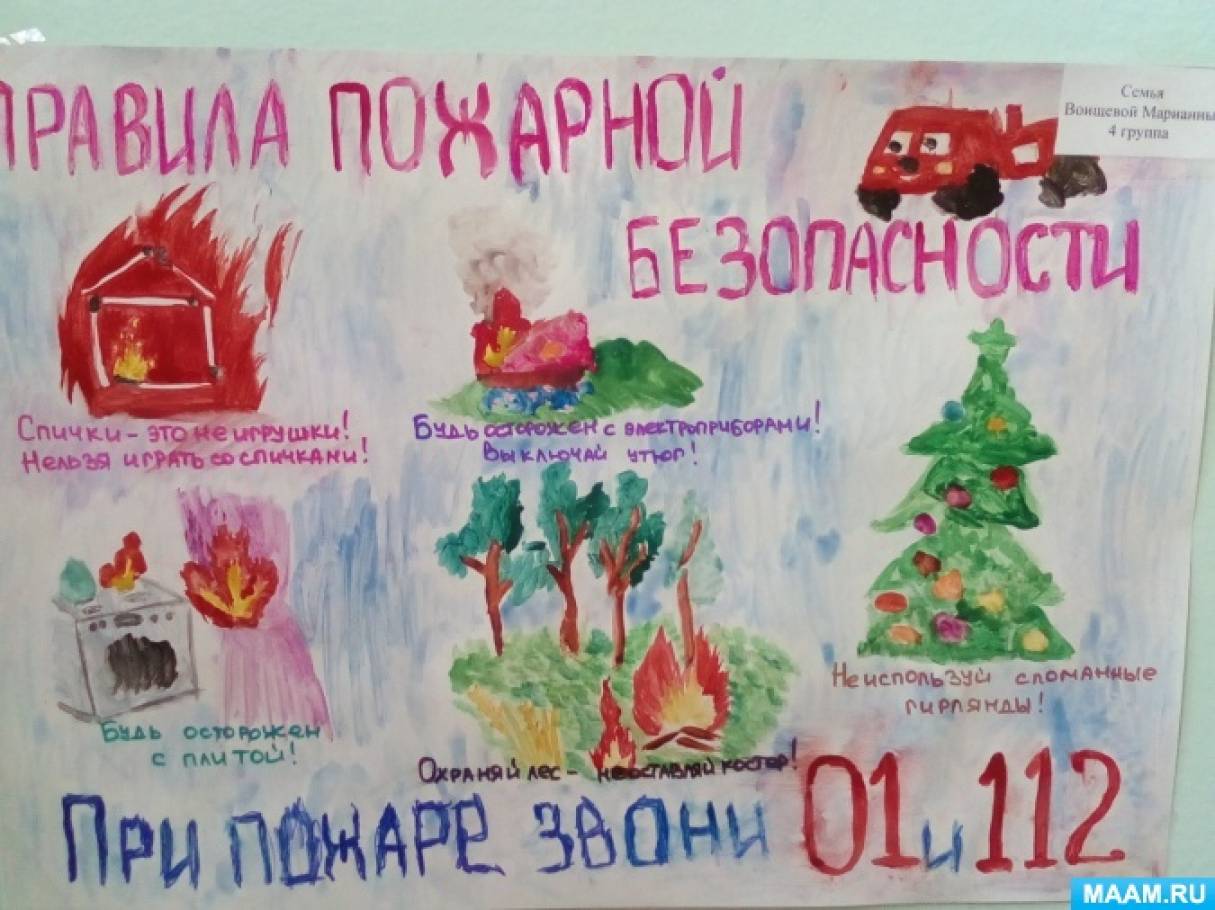 ПРАВИЛА ПОЖАРНОЙ
БЕЗОПАСНОСТИ
Семья
Воищевой Марианны
4 группа
Спички - это не игрушки!
Нельзя играть со спичками!
Будь осторожен с электроприборами!
Выключай утюг!
Будь осторожен
с плитой!
Охраняй лес - не оставляй костёр!
Не используй сломанные
гирлянды!
При пожаре звони 01 и 112
MAAM.RU